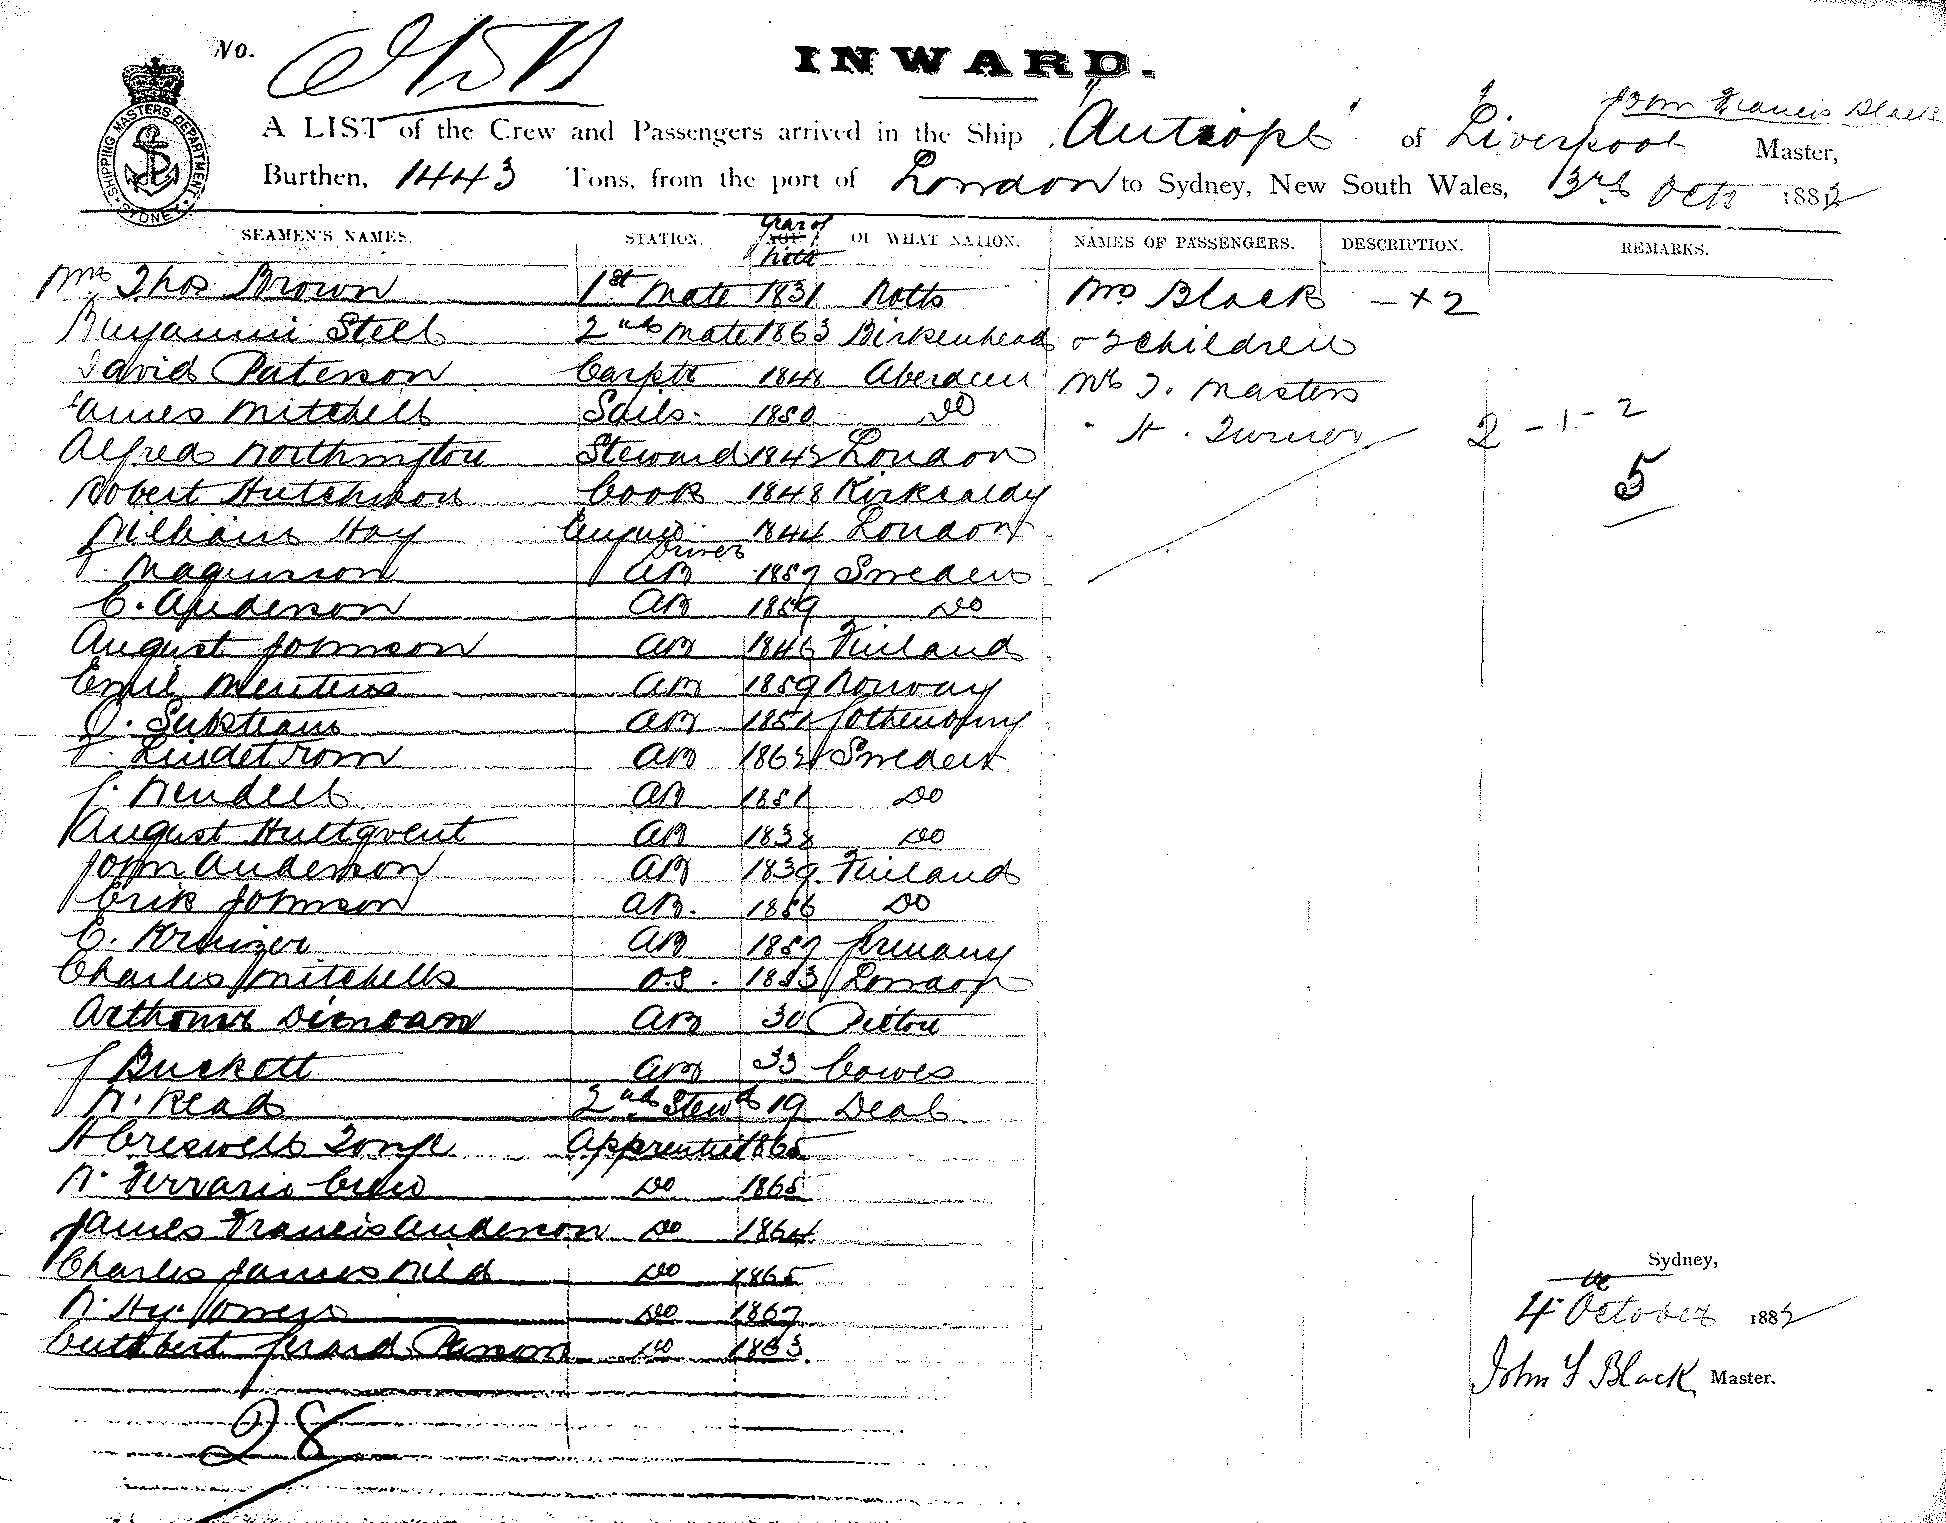 No.
INWARD.
SHIPPING MASTERS DEPARTMENT SYDNEY
John Francis Black
A LIST of the Crew and Passengers arrived in the Ship "Antiope" of Liverpool Master,
Burthen, 1443 Tons, from the port of London to Sydney, New South Wales, 3rd Oct 1882
SEAMEN'S NAMES. STATION. AGE Year of birth OF WHAT NATION. NAMES OF PASSENGERS. DESCRIPTION. REMARKS.
Thos Brown 1st Mate 1831 Notts Mrs Black - + 2
Benjamin Steel 2nd Mate 1863 Birkenhead & 2 children
David Paterson Carptr 1848 Aberdeen Mr J. Masters
James Mitchell Sails. 1850 Do " H. Turner 2 - 1 - 2
Alfred Northington Steward 1842 London 5
Robert Hutchison Cook 1848 Kirkcaldy
William Hay Engine Driver 1844 London
Magnuson AB 1857 Sweden
C. Anderson AB 1859 Do
August Johnson AB 1846 Finland
Emil AB 1859 Norway
AB 1851 Gothenburg
Lindstrom AB 1862 Sweden
AB 1851 Do
August AB 1838 Do
John Anderson AB 1839 Finland
Erik Johnson AB. 1856 Do
C. AB 1857 Germany
Charles Mitchells O.S. 1853 London
Duncan AB 30 Pictou
J Buckett AB 33 Cowes
Read 2nd Stewd 19 Deal
H Creswell Apprentice 1865
Do 1865
James Francis Anderson Do 1864
Charles James Do 1865
Do 1867
Cuthbert Gerard Do 1863
28
Sydney,
4th October 1882
John F Black Master.